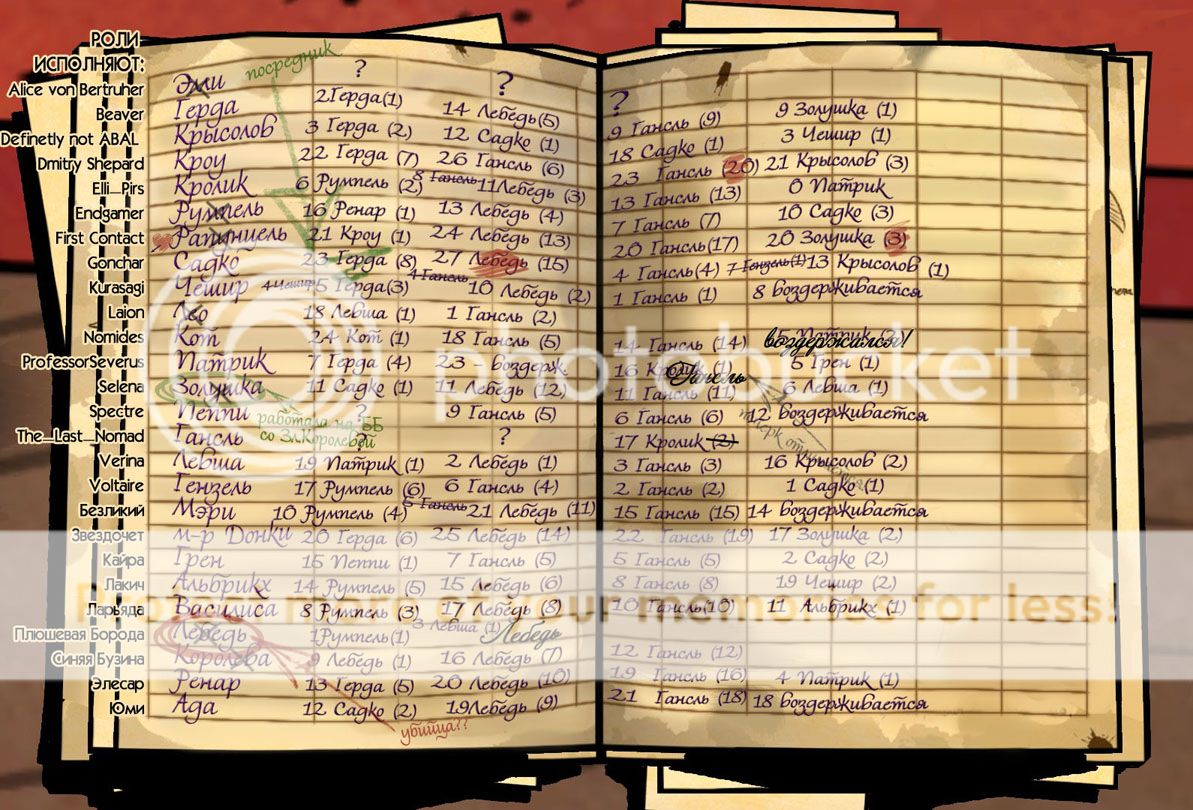 РОЛИ
ИСПОЛНЯЮТ:
посредник
Alice von Bertruher Элли ? ? ?
Beaver Герда 2 Герда (1) 14 Лебедь (5) 9 Гансль (9) 9 Золушка (1)
Definetly not ABAL Крысолов 3 Герда (2) 12 Садко (1) 18 Садко (1) 3 Чешир (1)
Dmitry Shepard Кроу 22 Герда (7) 26 Гансль (6) 23 Гансль (20) 21 Крысолов (3)
Elli_Pirs Кролик 6 Румпель (2) 8 Гансль 11 Лебедь (3) 13 Гансль (13) 0 Патрик
Endgamer Румпель 16 Ренар (1) 13 Лебедь (4) 7 Гансль (7) 10 Садко (3)
First Contact Рапунцель 21 Кроу (1) 24 Лебедь (13) 20 Гансль (17) 20 Золушка (3)
Gonchar Садко 23 Герда (8) 27 Лебедь (15) 4 Гансль (4) 7 Гензель (1) 13 Крысолов (1)
Kurasagi Чешир 4 Чешир 5 Герда (3) 4 Гансль 10 Лебедь (2) 1 Гансль (1) 8 воздерживается
Laion Лео 18 Левша (1) 1 Гансль (2)
Nomides Кот 24 Кот (1) 18 Гансль (5) 14 Гансль (14) 5 Патрик (2) воздержался!
ProfessorSeverus Патрик 7 Герда (4) 23 - воздерж. 16 Гансль 5 Грен (1)
Selena Золушка 11 Садко (1) 11 Лебедь (12) 11 Гансль (11) 6 Левша (1)
Spectre Пеппи ? 9 Гансль (5) 6 Гансль (6) 12 воздерживается
работала на ББ
со Зл.Королевой
The_Last_Nomad Гансль ? ? 17 Кролик (2)
Verina Левша 19 Патрик (1) 2 Лебедь (1) 3 Гансль (3) 16 Крысолов (2)
Voltaire Гензель 17 Румпель (6) 6 Гансль (4) 2 Гансль (2) 1 Садко (1)
Безликий Мэри 10 Румпель (4) 5 Гансль 21 Лебедь (11) 15 Гансль (15) 14 воздерживается
Звездочет м-р Донки 20 Герда (6) 25 Лебедь (14) 22 Гансль (19) 17 Золушка (2)
Кайра Грен 15 Пеппи (1) 7 Гансль (5) 5 Гансль (5) 2 Садко (2)
Лакич Альбрихх 14 Румпель (5) 15 Лебедь (6) 8 Гансль (8) 19 Чешир (2)
Ларьяда Василиса 8 Румпель (3) 17 Лебедь (8) 10 Гансль (10) 11 Альбрихх (1)
Плюшевая Борода Лебедь 1 Румпель (1) 3 Левша (1) Лебедь
Синяя Бузина Королева 9 Лебедь (1) 16 Лебедь (7) 12 Гансль (12)
Элесар Ренар 13 Герда (5) 20 Лебедь (10) 19 Гансль (16) 4 Патрик (1)
Юми Ада 12 Садко (2) 19 Лебедь (9) 21 Гансль (18) 18 воздерживается
убийца??
photobucket